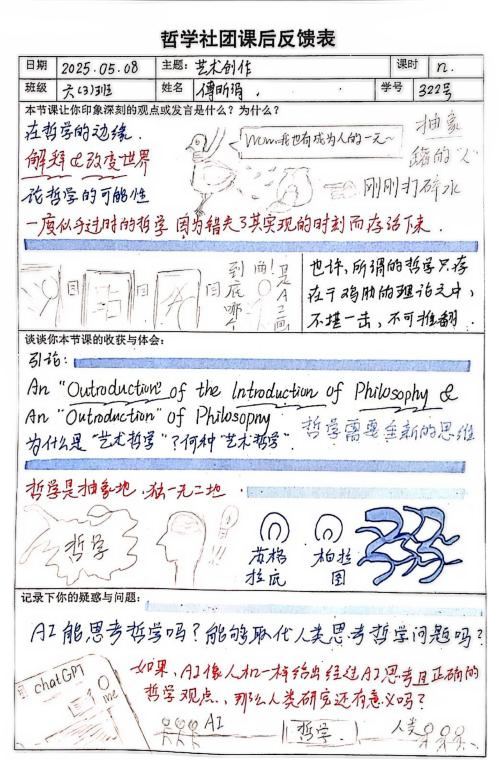 哲学社团课后反馈表
日期 2025.05.08 主题: 艺术创作 课时 n.
班级 六(3)班 姓名 傅昕涓 学号 322号
本节课让你印象深刻的观点或发言是什么? 为什么?
在哲学的边缘.
解释 & 改变世界
论哲学的可能性
Wow~我也有成为人的一天~
抽象
刚刚打碎水
一度似乎过时的哲学 因为错失了其实现的时刻而存活下来.
到底哪个
是AI画
也许,所谓的哲学只存
在于鸡肋的理论之中,
不堪一击,不可推翻.
谈谈你本节课的收获与体会:
引论:
An "Outroduction" of the Introduction of Philosophy &
An "Outroduction" of Philosopny
为什么是"艺术哲学"?何种"艺术哲学".
哲学需要全新的思维
哲学是抽象地.独一无二地
哲学
苏格拉底
柏拉图
记录下你的疑惑与问题:
AI能思考哲学吗?能够取代人类思考哲学问题吗?
chatGPT
me
如果,AI像人机一样给出经过AI思考且正确的
哲学观点.,那么人类研究还有意义吗?
AI
哲学.
人类